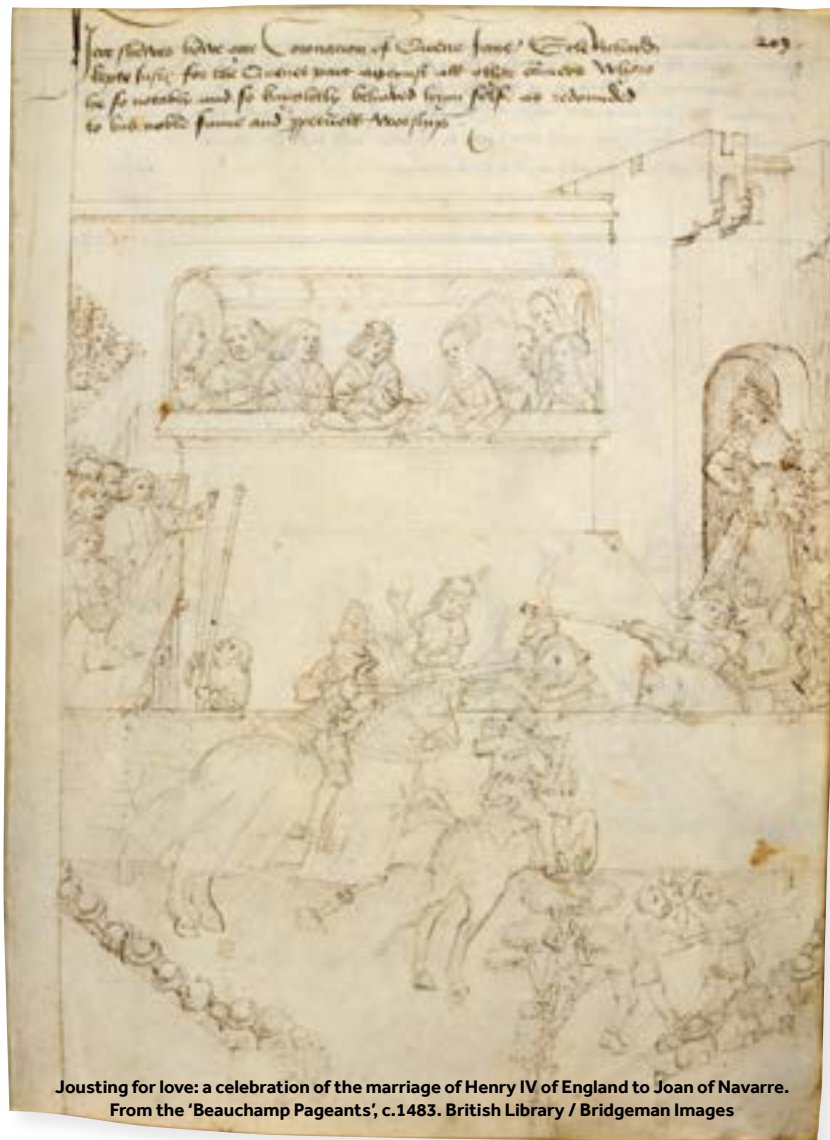 shewes howe Coronacion of Quene Jane Erle Richard
kepte for the Quenes part all other comers Where
he so notably and so knyghtly behaved hym self as redounded
to his noble fame and worship
Jousting for love: a celebration of the marriage of Henry IV of England to Joan of Navarre.
From the ‘Beauchamp Pageants’, c.1483. British Library / Bridgeman Images